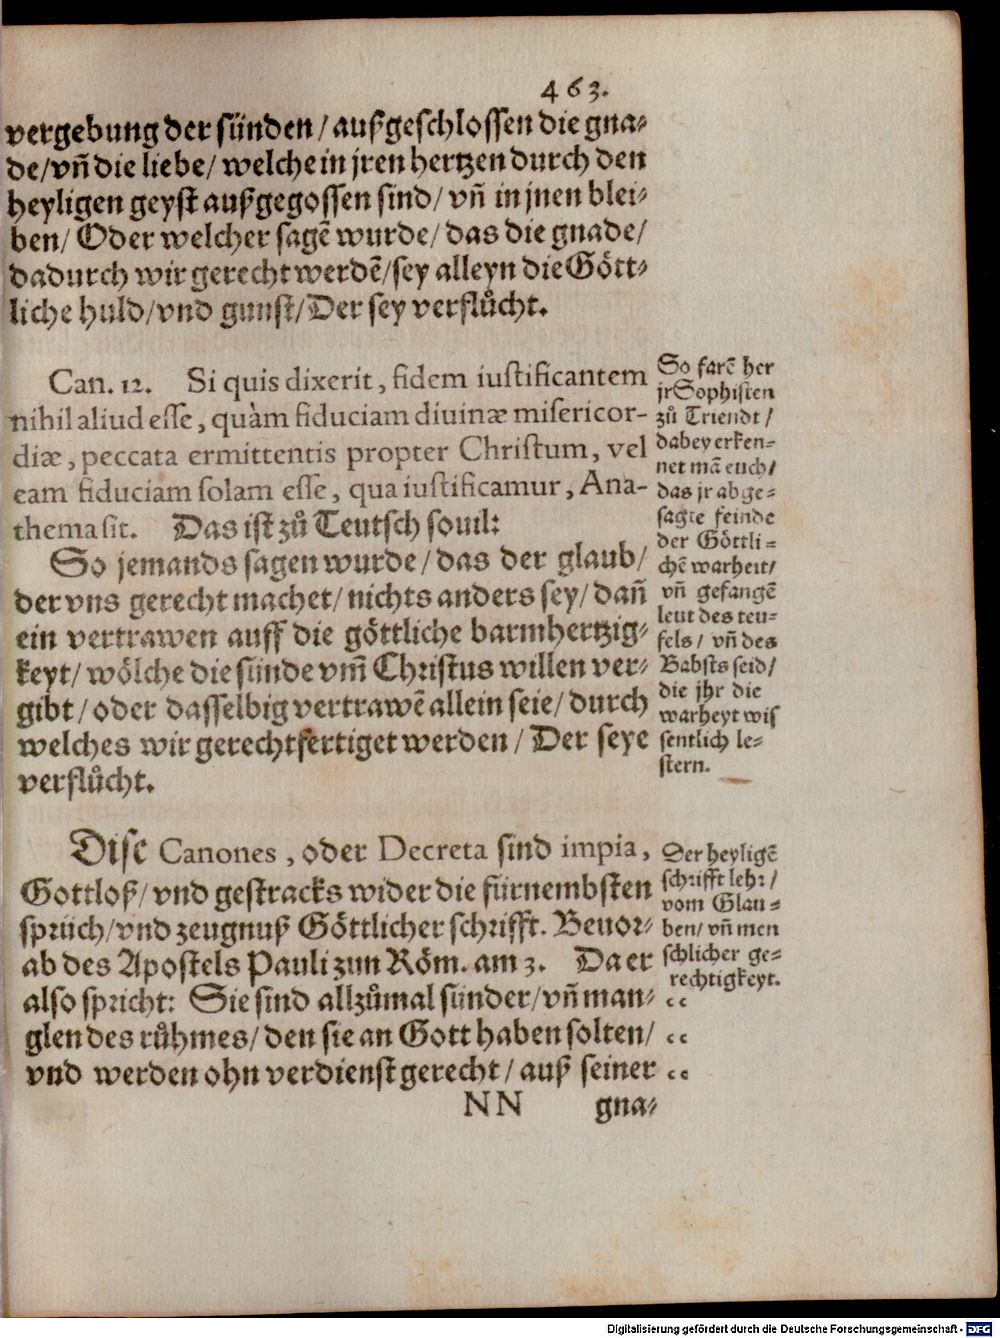 463.
vergebung der sünden / außgeschlossen die gna⸗
de/vñ die liebe/ welche in jren hertzen durch den
heyligen geyst außgegossen sind/ vñ in jnen blei⸗
ben/ Oder welcher sagẽ wurde/ das die gnade/
dadurch wir gerecht werdẽ/sey alleyn die Gött⸗
liche huld/vnd gunst/Der sey verflůcht.
Can. 12. Si quis dixerit, fidem iustificantem
nihil aliud esse, quàm fiduciam diuinæ misericor-
diæ, peccata ermittentis propter Christum, vel
eam fiduciam solam esse, qua iustificamur, Ana-
thema sit. Das ist zů Teutsch souil:
So jemands sagen wurde/ das der glaub/
der vns gerecht machet/ nichts anders sey/ dañ
ein vertrawen auff die göttliche barmhertzig⸗
keyt/ wölche die sünde vm̃ Christus willen ver⸗
gibt / oder dasselbig vertrawẽ allein seie/ durch
welches wir gerechtfertiget werden / Der seye
verflůcht.
So farẽ her
jr Sophisten
zů Triendt /
dabey erken⸗
net mã euch/
das jr abge⸗
sagte feinde
der Göttli⸗
chẽ warheit/
vñ gefangẽ
leut des teu⸗
fels/ vñ des
Babsts seid/
die jhr die
warheyt wis
sentlich le⸗
stern.
Dise Canones, oder Decreta sind impia,
Gottloß/ vnd gestracks wider die fürnembsten
sprüch/vnd zeugnuß Göttlicher schrifft. Beuor⸗
ab des Apostels Pauli zun Röm. am 3. Da er
also spricht: Sie sind allzůmal sünder/vñ man⸗ “
glen des růhmes/ den sie an Gott haben solten/ “
vnd werden ohn verdienst gerecht / auß seiner “
Der heyligẽ
schrifft lehr/
vom Glau⸗
ben/ vñ men
schlicher ge⸗
rechtigkeyt.
NN gna⸗
Digitalisierung gefördert durch die Deutsche Forschungsgemeinschaft - DFG